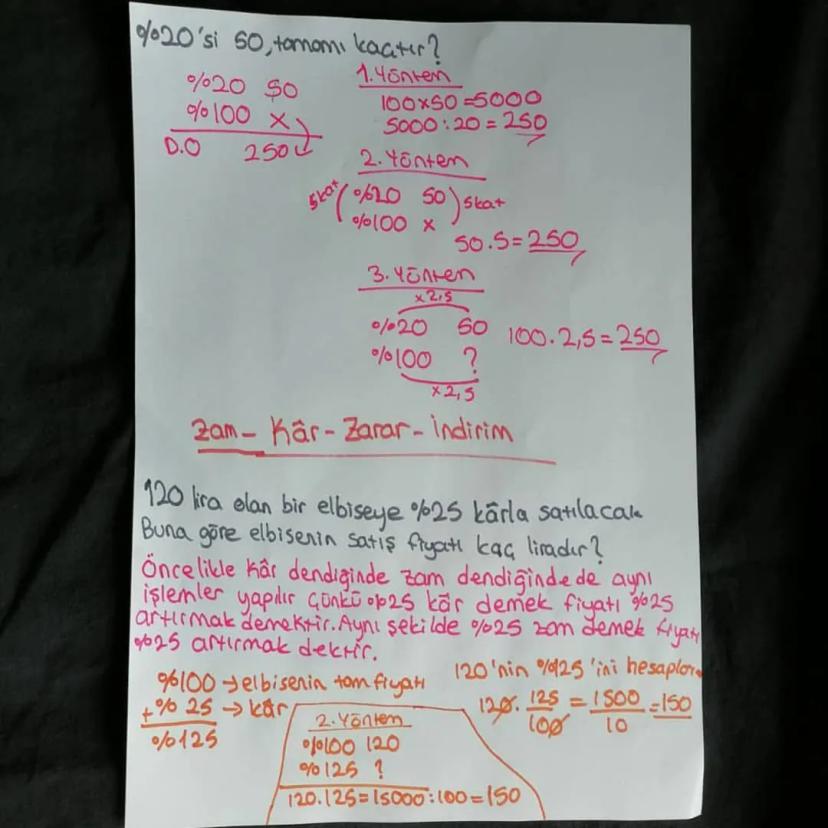 %20'si 50, tamamı kaçtır?
%20 50
%100 x
D.O 250
1. Yöntem
100x50=5000
5000:20=250
2. Yöntem
5kat %20 50 5kat
%100 x
50.5=250
3. Yöntem
x2,5
%20 50
%100 ?
x2,5
100.2,5=250
Zam-Kâr-Zarar-İndirim
120 lira olan bir elbiseye %25 kârla satılacak
Buna göre elbisenin satış fiyatı kaç liradır?
Öncelikle kâr dendiğinde zam dendiğinde de aynı
işlemler yapılır çünkü %25 kâr demek fiyatı %25
artırmak demektir. Aynı şekilde %25 zam demek fiyatı
%25 artırmak dektir.
%100 → elbisenin tam fiyatı
+% 25 → kâr
%125
2. Yöntem
%100 120
%125 ?
120.125=15000:100=150
120'nin %125'ini hesapları
120. 125/100 = 1500/10 = 150